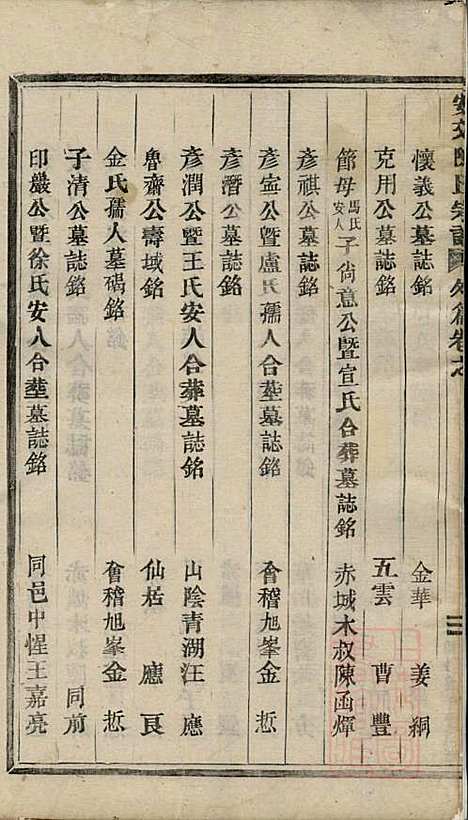 安文陳氏宗譜 外篇卷之
懷義公墓誌銘 金華 姜綱
克用公墓誌銘 五雲 曹豐
節母馬氏安人子尙意公暨宣氏合葬墓誌銘 赤城木叔陳函煇
彥祺公墓誌銘
彥寍公暨盧氏孺人合塟墓誌銘 會稽旭峯金悊
彥潛公墓誌銘
彥潤公暨王氏安人合葬墓誌銘 山陰青湖汪應
魯齋公壽域銘 仙居 應良
金氏孺人墓碣銘 會稽旭峯金悊
子清公墓誌銘 同前
印嚴公暨徐氏安人合塟墓誌銘 同邑中惺王嘉亮